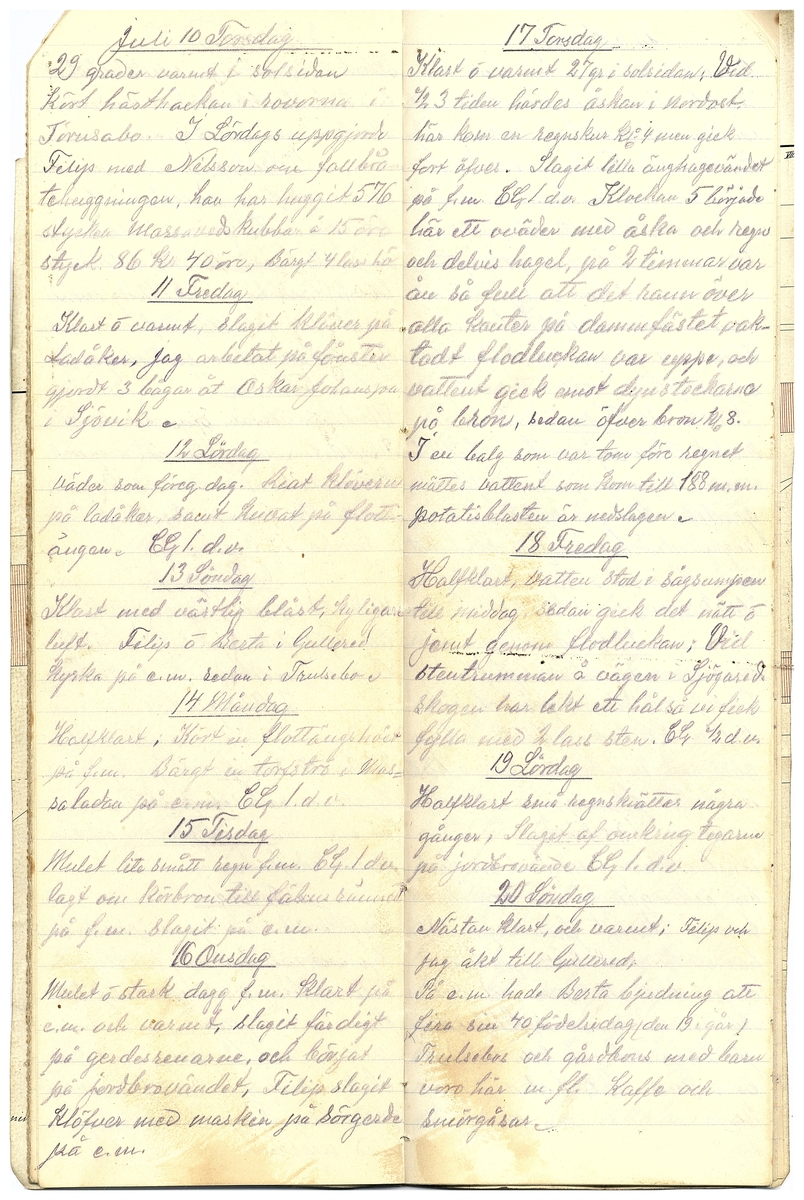 Juli 10 Torsdag
29 grader varmt i solsidan
Kört hästhackan i rovorna i
Torusabo. I Lördags uppgjorde
Filip med Nilsson om fallbrå
tehuggningen, han har huggit 576
stycken massavedskubbar à 15 öre
styck. 86 kr 40 öre, Bärgt 4 lass hö
11 Fredag
Klart ö varmt, slagit klöver på
Ladåker, jag arbetat på fönster
gjordt 3 bågar åt Oskar Johansson
i Sjövik
12 Lördag
väder som föreg. dag. Riat klövern
på ladåker, samt kuvat på flott-
ängan. CG 1. d.v.
13 Söndag
Klart med västlig blåst, kyligare
luft. Filip ö Berta i Gullered
kyrka på e.m. sedan i Trulsebo
14 Måndag
Halfklart, Kört in flottängshöet
på f.m. Bärgt in torfströ i Mas-
saladan på e.m. CG 1. d.v.
15 Tisdag
Mulet lite smått regn f.m. CG. 1 d.v.
lagt om körbron till
på f.m. slagit på e.m.
16 Onsdag
Mulet ö stark dagg f.m. klart på
e.m. och varmt, slagit färdigt
på gerdesrenarne, och börjat
på jordbrovändet, Filip slagit
klöfver med maskin på Sörgerde
på e.m.
17 Torsdag
Klart ö varmt 27 gr i solsidan, Vid
1/2 3 tiden hördes åskan i nordost,
här kom en regnskur kl 4 men gick
fort öfver. Slagit lilla änghagevändet
på f.m. CG 1. d.v. Klockan 5 började
här ett oväder med åska och regn
och delvis hagel, på 2 timmar var
ån så full att det rann över
alla kanter på dammfästet vak-
tadt flodluckan var uppe, och
vattent gick emot dynstockarna
på bron, sedan öfver bron kl 8.
I en balg som var tom före regnet
mättes vattent som kom till 188 m.m.
potatisblasten är nedslagen
18 Fredag
Halfklart, vatten stod i sågsumpen
till middag, sedan gick det nätt ö
jemt genom flodluckan; Vid
stentrumman å vägen i Sjögareds
skogen har läkt ett hål så vi fick
fylla med 2 lass sten. CG 1/2 d.v.
19 Lördag
Halfklart små regnskvätter några
gånger; Slagit af omkring tegarne
på jordbrovände CG 1. d.v
20 Söndag
Nästan klart, och varmt; Filip och
jag åkt till Gullered;
På e.m. hade Berta bjudning att
fira sin 40 födelsedag (den 19. i går)
Trulsebos och gårdkons med barn
voro här m.fl. Kaffe och
smörgåsar